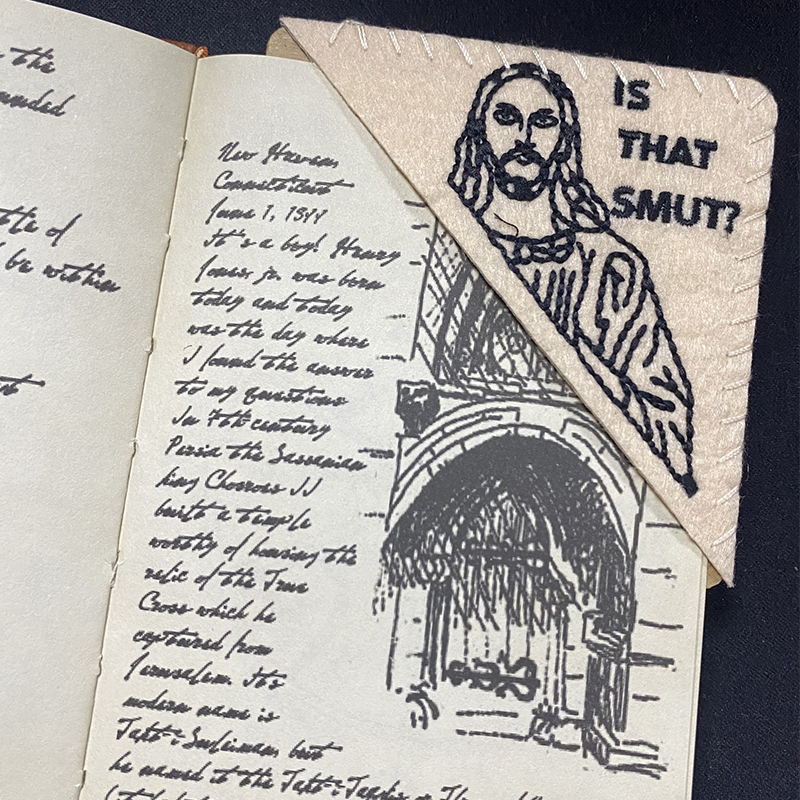 the
ounded
ble of
be within
IS
THAT
SMUT?
New Haven
Connecticut
June 1, 19
It's a boy! Henry
Jones jr. was born
today and today
was the day where
I found the answer
to my questions
In 7th century
Persia the Sassanian
king Chosroes II
built a temple
worthy of housing the
relic of the True
Cross which he
captured from
Jerusalem. It's
modern name is
Takt-i-Suleiman but
he named it the Takt-i-Taqdis or